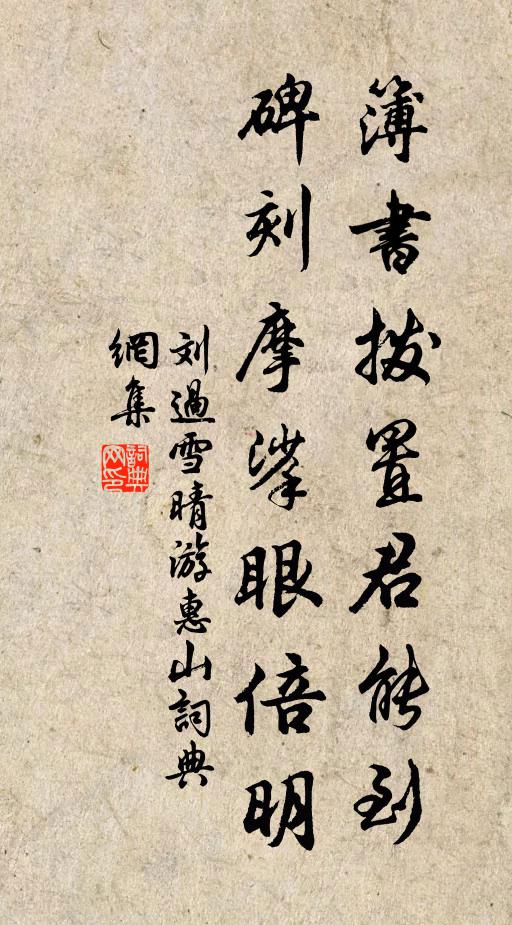 簿書撥置君能到
碑刻摩挲眼倍明
刘過雪晴游惠山詞典
網集
詞典
网印